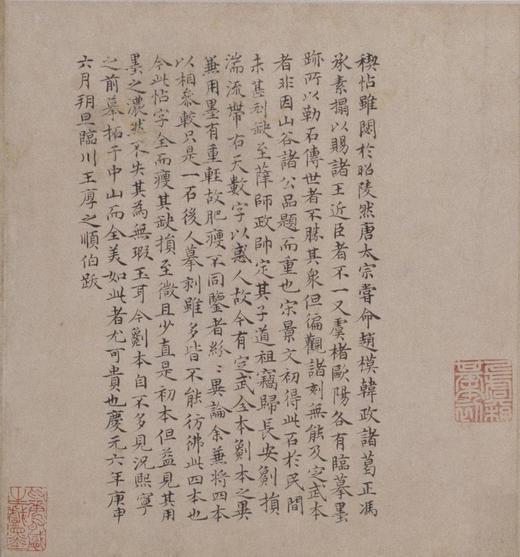 禊帖雖閟於昭陵然唐太宗嘗命趙模韓政諸葛正馮
承素搨以賜諸王近臣者不一又虞楮歐陽各有臨摹墨
跡所以勒石傳世者不勝其衆但徧觀諸刻無能及定武本
者非因山谷諸公品題而重也宋景文初得此石於民間
未甚刓缺至薛師政帥定其子道祖竊歸長安劖損
湍流帶右天數字以惑人故今有定武全本劖本之異
兼用墨有重輊故肥瘦不同鑒者紛〻異論余兼將四本
以相叅較只是一石後人摹刻雖多皆不能彷彿此四本也
今此帖字全而瘦其缺損至微且少直是初本但益見其用
墨之濃淡不失其為無瑕玉耳今劖本自不多見況熙寧
之前摹拓于中山而全美如此者尤可貴也慶元六年庚申
六月朔旦臨川王厚之順伯跋